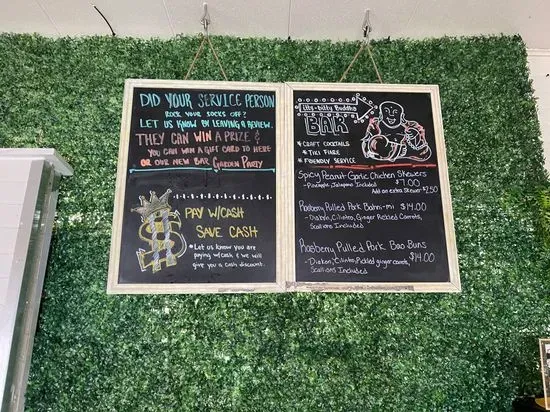 DID YOUR SERVICE PERSON
ROCK YOUR SOCKS OFF?
LET US KNOW BY LEAVING A REVIEW.
THEY CAN WIN A PRIZE &
YOU CAN WIN A GIFT CARD TO HERE
OR OUR NEW BAR GARDEN PARTY
PAY W/CASH
SAVE CASH
*Let us know you are
paying w/cash & we will
give you a cash discount.
itty-bitty Buddha
BAR
* CRAFT COCKTAILS
* TIKI FLARE
* FRIENDLY SERVICE
Spicy Peanut Garlic Chicken Skewers
- Pineapple, Jalapeno Included $7.00
Add an extra Skewer $2.50
Raspberry Pulled Pork Bahn-mi $14.00
- Diakon, Cilintro, Ginger Pickled Carrots,
Scallions Included
Raspberry Pulled Pork Bao Buns
- Diakon, Cilintro, Pickled ginger carrots,
Scallions Included $14.00